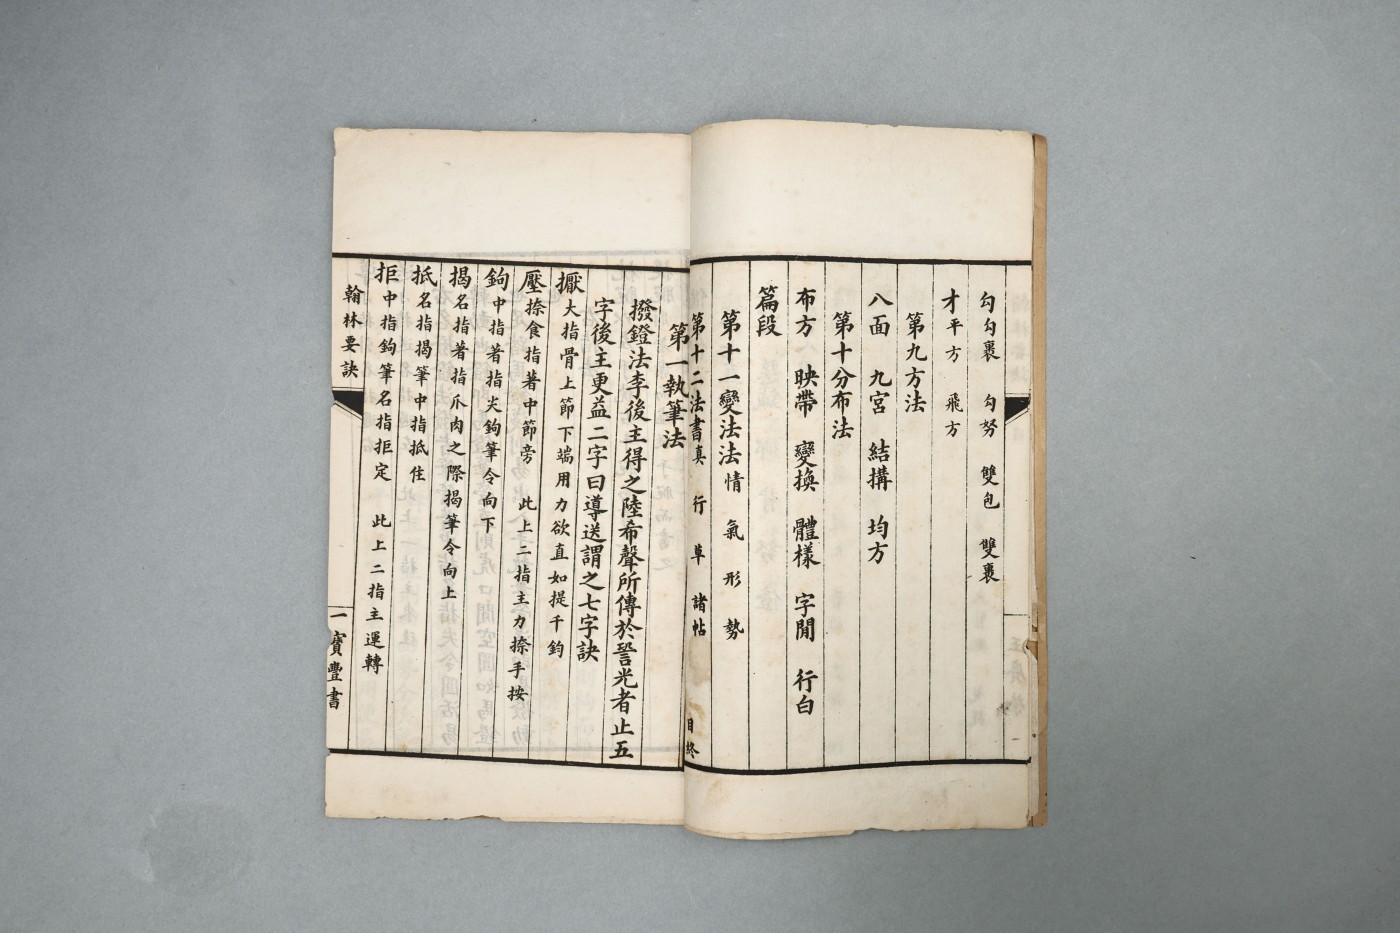 勾勾裹　勾努　雙包　雙裹
才平方　飛方
第九方法
八面　九宮　結搆　均方
第十分布法
布方　映帶　變換　體樣　字閒　行白
篇段
第十一變法法情　氣　形　勢
第十二法書真　行　草　諸帖　目終
第一執筆法
撥鐙法李後主得之陸希聲所傳於晉光者止五
字後主更益二字曰導送謂之七字訣
擫大指骨上節下端用力欲直如提千鈞
壓捺食指著中節旁　此上二指主力捺手按
鉤中指著指尖鉤筆令向下
揭名指著指爪肉之際揭筆令向上
抵名指揭筆中指抵住
拒中指鉤筆名指拒定　此上二指主運轉
翰林要訣　一寶豐書